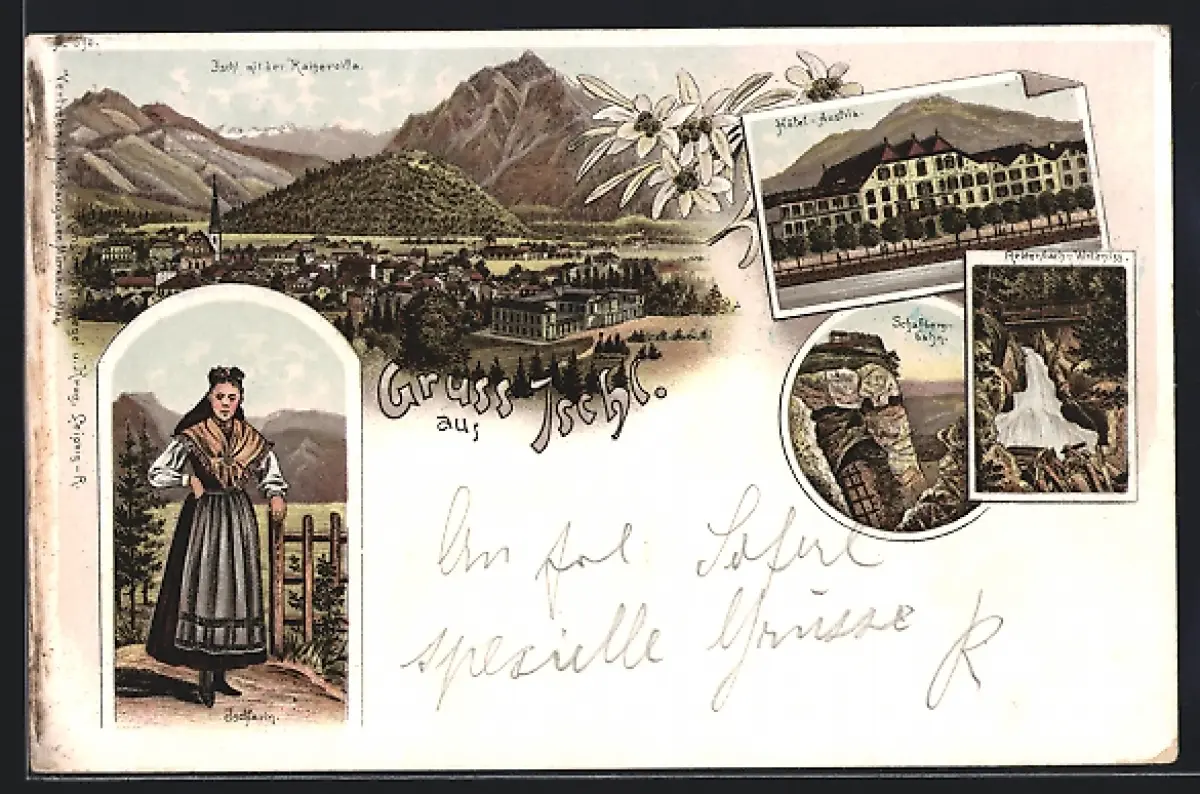 Ischl mit der Kaiservilla.
Hôtel-Austria.
Rettenbach-Wildniss.
Schafberg-
bahn.
Gruss
aus Ischl.
An frl. Soferl
spezielle Grüsse
Ischlerin.
Leipzig-R.